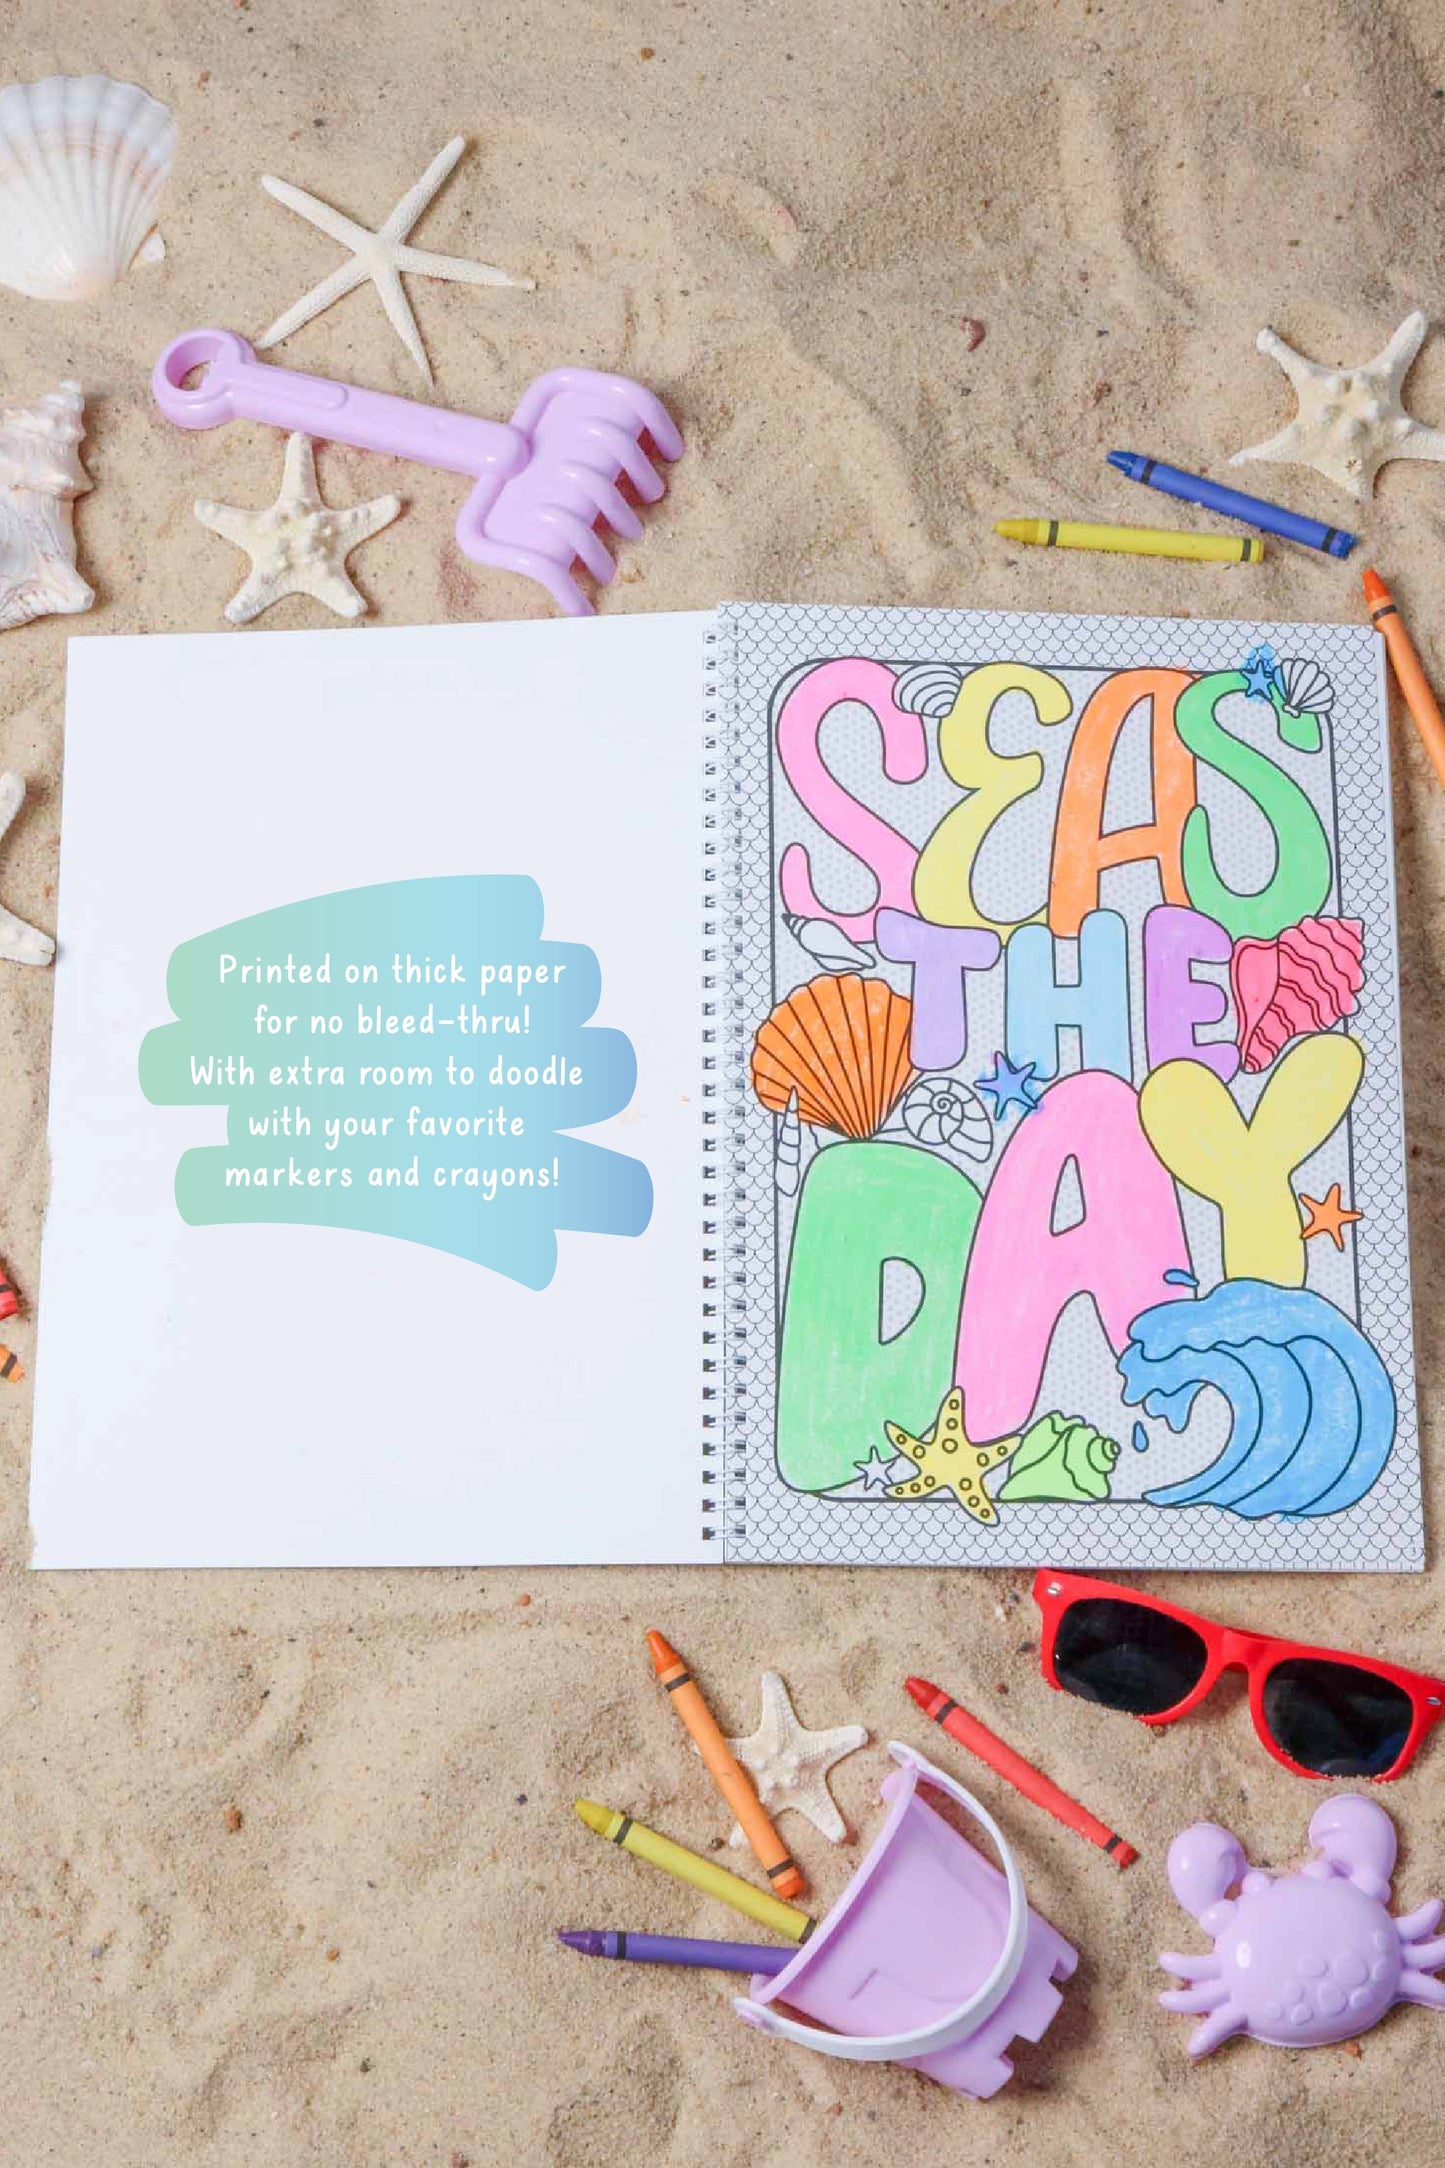 Printed on thick paper
for no bleed-thru!
With extra room to doodle
with your favorite
markers and crayons!
SEAS
THE
DAY